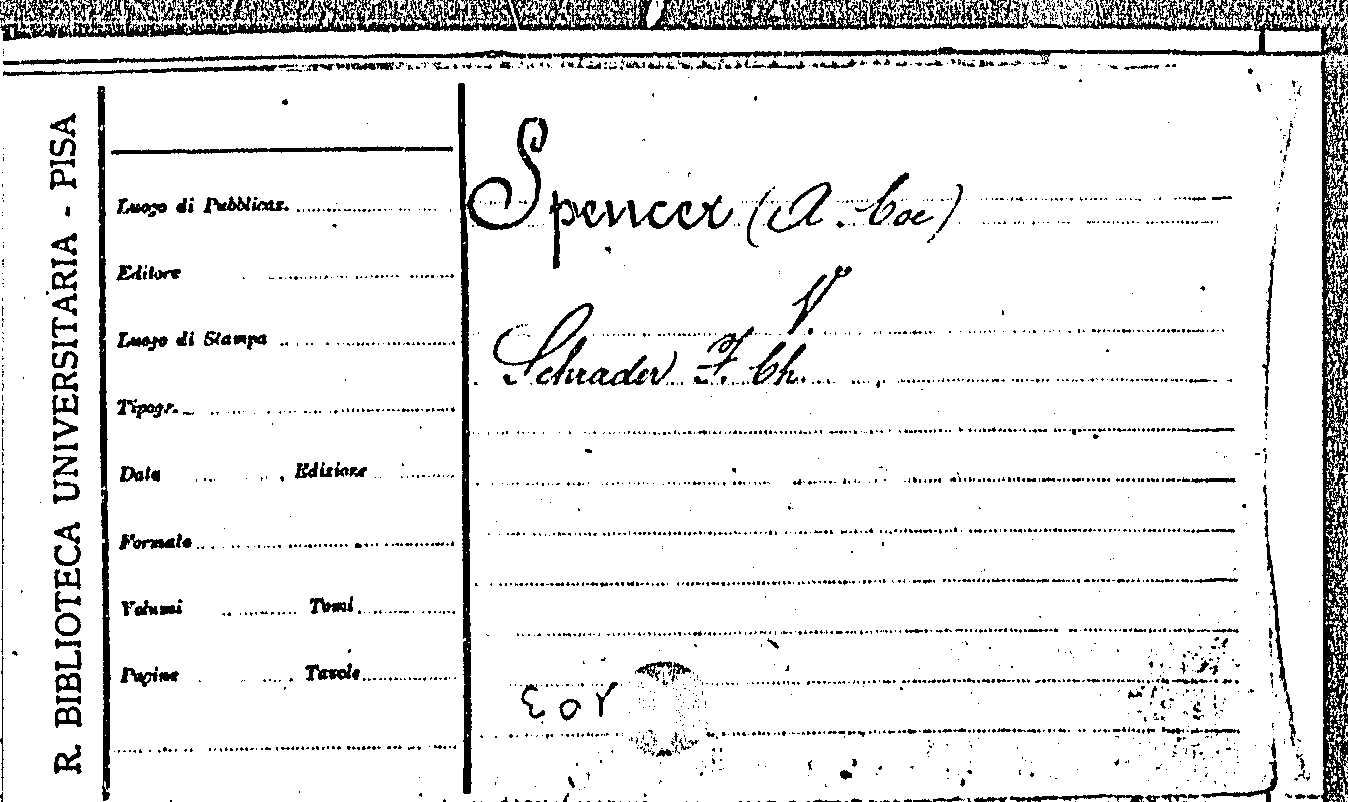 R. BIBLIOTECA UNIVERSITARIA - PISA
Luogo di Pubblicaz.
Editore
Luogo di Stampa
Tipogr.
Data Edizione
Formato
Volumi Tomi
Pagine Tavole
Spencer (A. Coe)
V.
Schrader F. Ch.